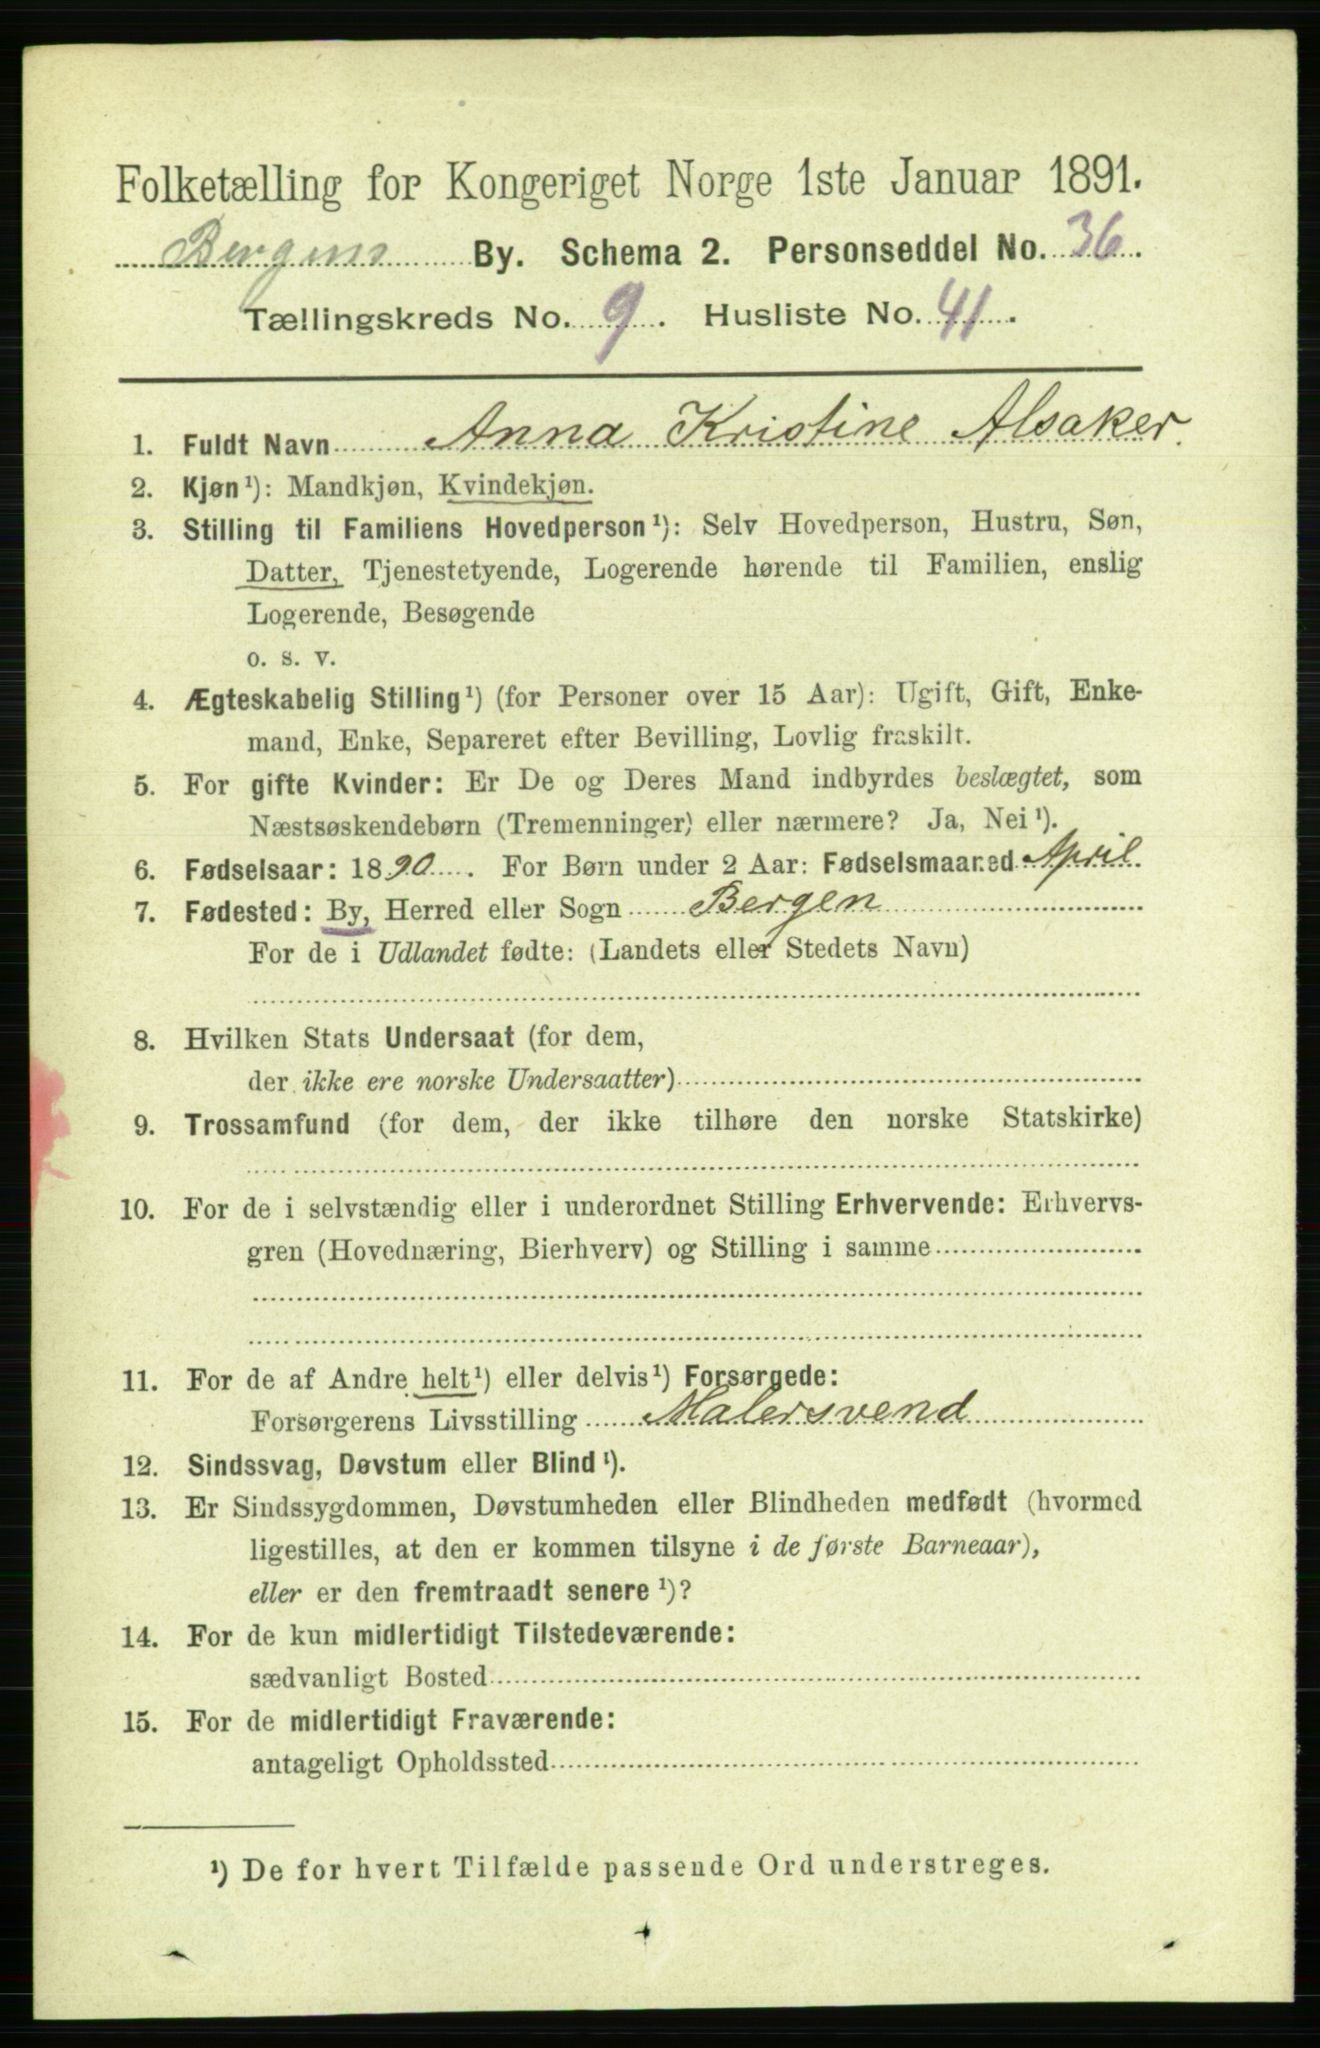 Folketælling for Kongeriget Norge 1ste Januar 1891.
Bergens By. Schema 2. Personseddel No. 36.
Tællingskreds No. 9. Husliste No. 41.
1. Fuldt Navn Anna Kristine Alsaker.
2. Kjøn¹): Mandkjøn, Kvindekjøn.
3. Stilling til Familiens Hovedperson¹): Selv Hovedperson, Hustru, Søn,
Datter, Tjenestetyende, Logerende hørende til Familien, enslig
Logerende, Besøgende
o. s. v.
4. Ægteskabelig Stilling¹) (for Personer over 15 Aar): Ugift, Gift, Enke-
mand, Enke, Separeret efter Bevilling, Lovlig fraskilt.
5. For gifte Kvinder: Er De og Deres Mand indbyrdes beslægtet, som
Næstsøskendebørn (Tremenninger) eller nærmere? Ja, Nei¹).
6. Fødselsaar: 1890. For Børn under 2 Aar: Fødselsmaaned April
7. Fødested: By, Herred eller Sogn Bergen
For de i Udlandet fødte: (Landets eller Stedets Navn)
8. Hvilken Stats Undersaat (for dem,
der ikke ere norske Undersaatter)
9. Trossamfund (for dem, der ikke tilhøre den norske Statskirke)
10. For de i selvstændig eller i underordnet Stilling Erhvervende: Erhvervs-
gren (Hovednæring, Bierhverv) og Stilling i samme
11. For de af Andre helt¹) eller delvis¹) Forsørgede:
Forsørgerens Livsstilling Malersvend
12. Sindssvag, Døvstum eller Blind¹).
13. Er Sindssygdommen, Døvstumheden eller Blindheden medfødt (hvormed
ligestilles, at den er kommen tilsyne i de første Barneaar),
eller er den fremtraadt senere¹)?
14. For de kun midlertidigt Tilstedeværende:
sædvanligt Bosted
15. For de midlertidigt Fraværende:
antageligt Opholdssted
¹) De for hvert Tilfælde passende Ord understreges.